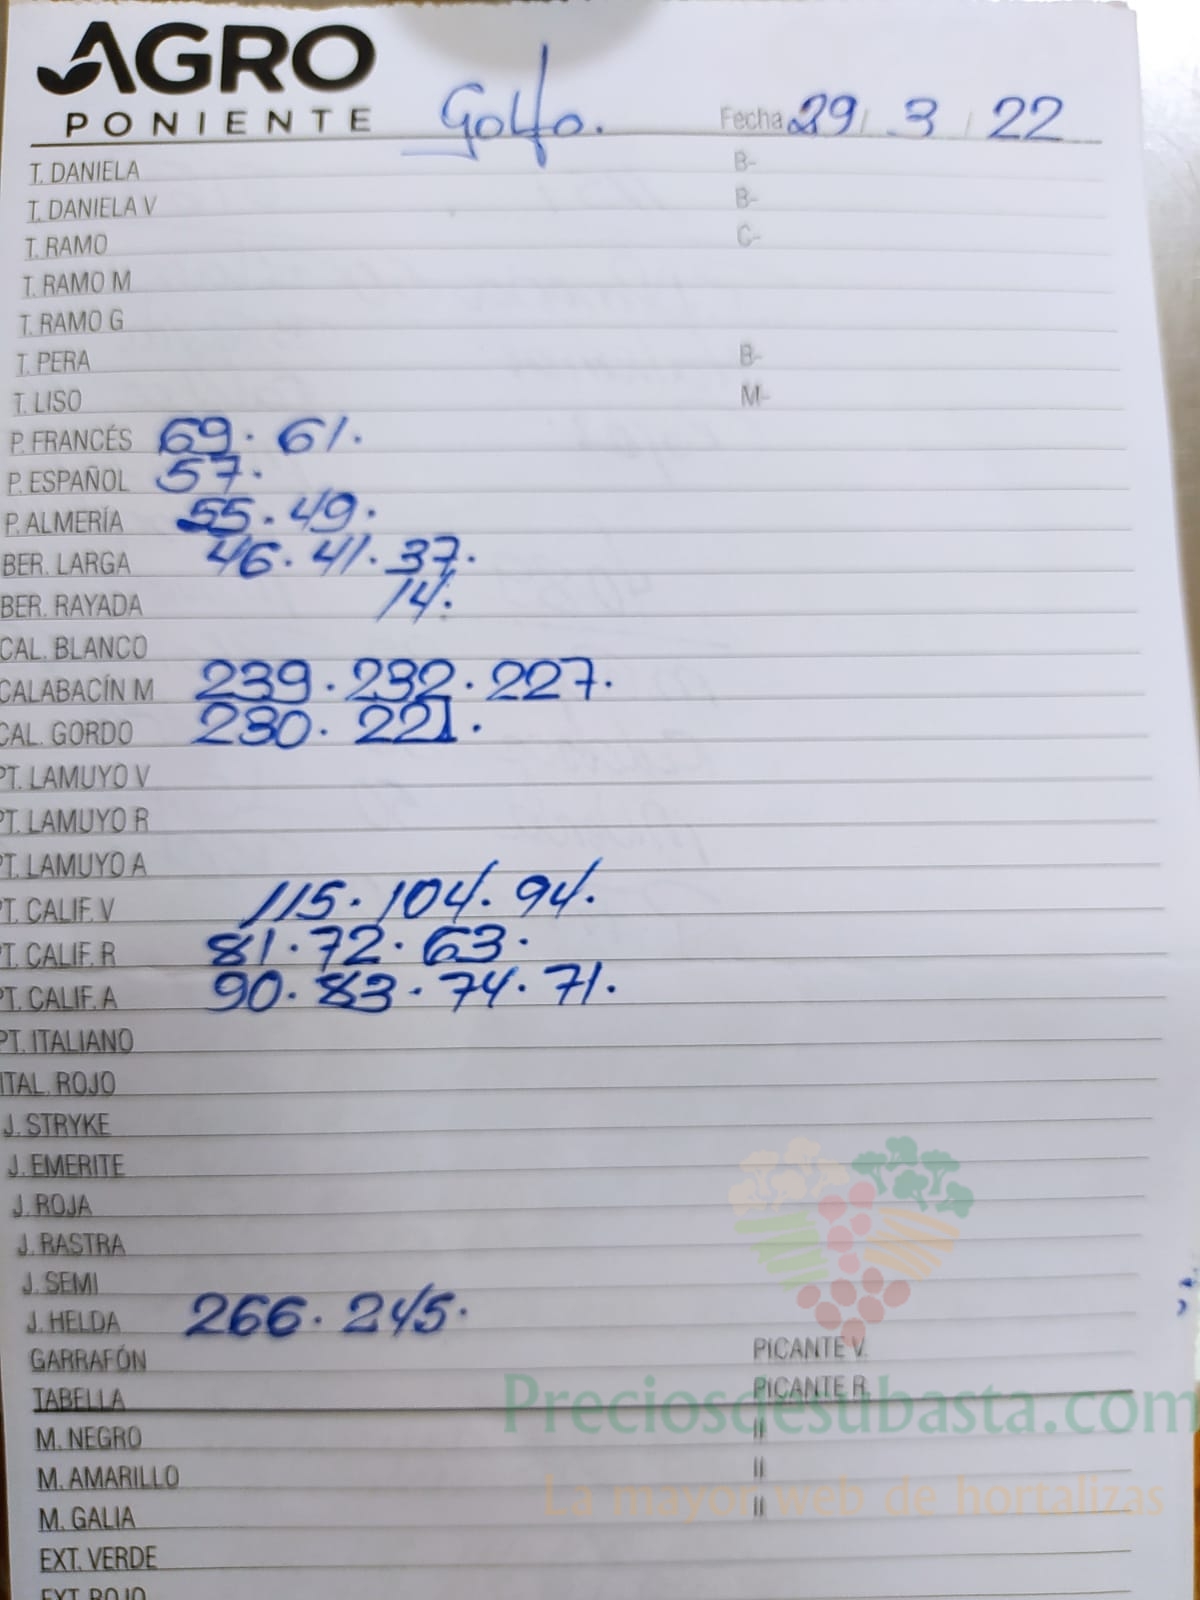 AGRO
PONIENTE Golfo. Fecha 29 / 3 / 22
T. DANIELA B-
T. DANIELA V B-
T. RAMO C-
T. RAMO M
T. RAMO G
T. PERA B-
T. LISO M-
P. FRANCÉS 69. 61.
P. ESPAÑOL 57.
P. ALMERÍA 55. 49.
BER. LARGA 46. 41. 37.
BER. RAYADA 14.
CAL. BLANCO
CALABACÍN M 239. 232. 227.
CAL. GORDO 230. 221.
PT. LAMUYO V
PT. LAMUYO R
PT. LAMUYO A
PT. CALIF. V 115. 104. 94.
PT. CALIF. R 81. 72. 63.
PT. CALIF. A 90. 83. 74. 71.
PT. ITALIANO
ITAL. ROJO
J. STRYKE
J. EMERITE
J. ROJA
J. RASTRA
J. SEMI
J. HELDA 266. 245.
GARRAFÓN PICANTE V.
TABELLA PICANTE R.
Preciosdesubasta.com
M. NEGRO II
M. AMARILLO II
La mayor web de hortalizas
M. GALIA II
EXT. VERDE
EXT. ROJO